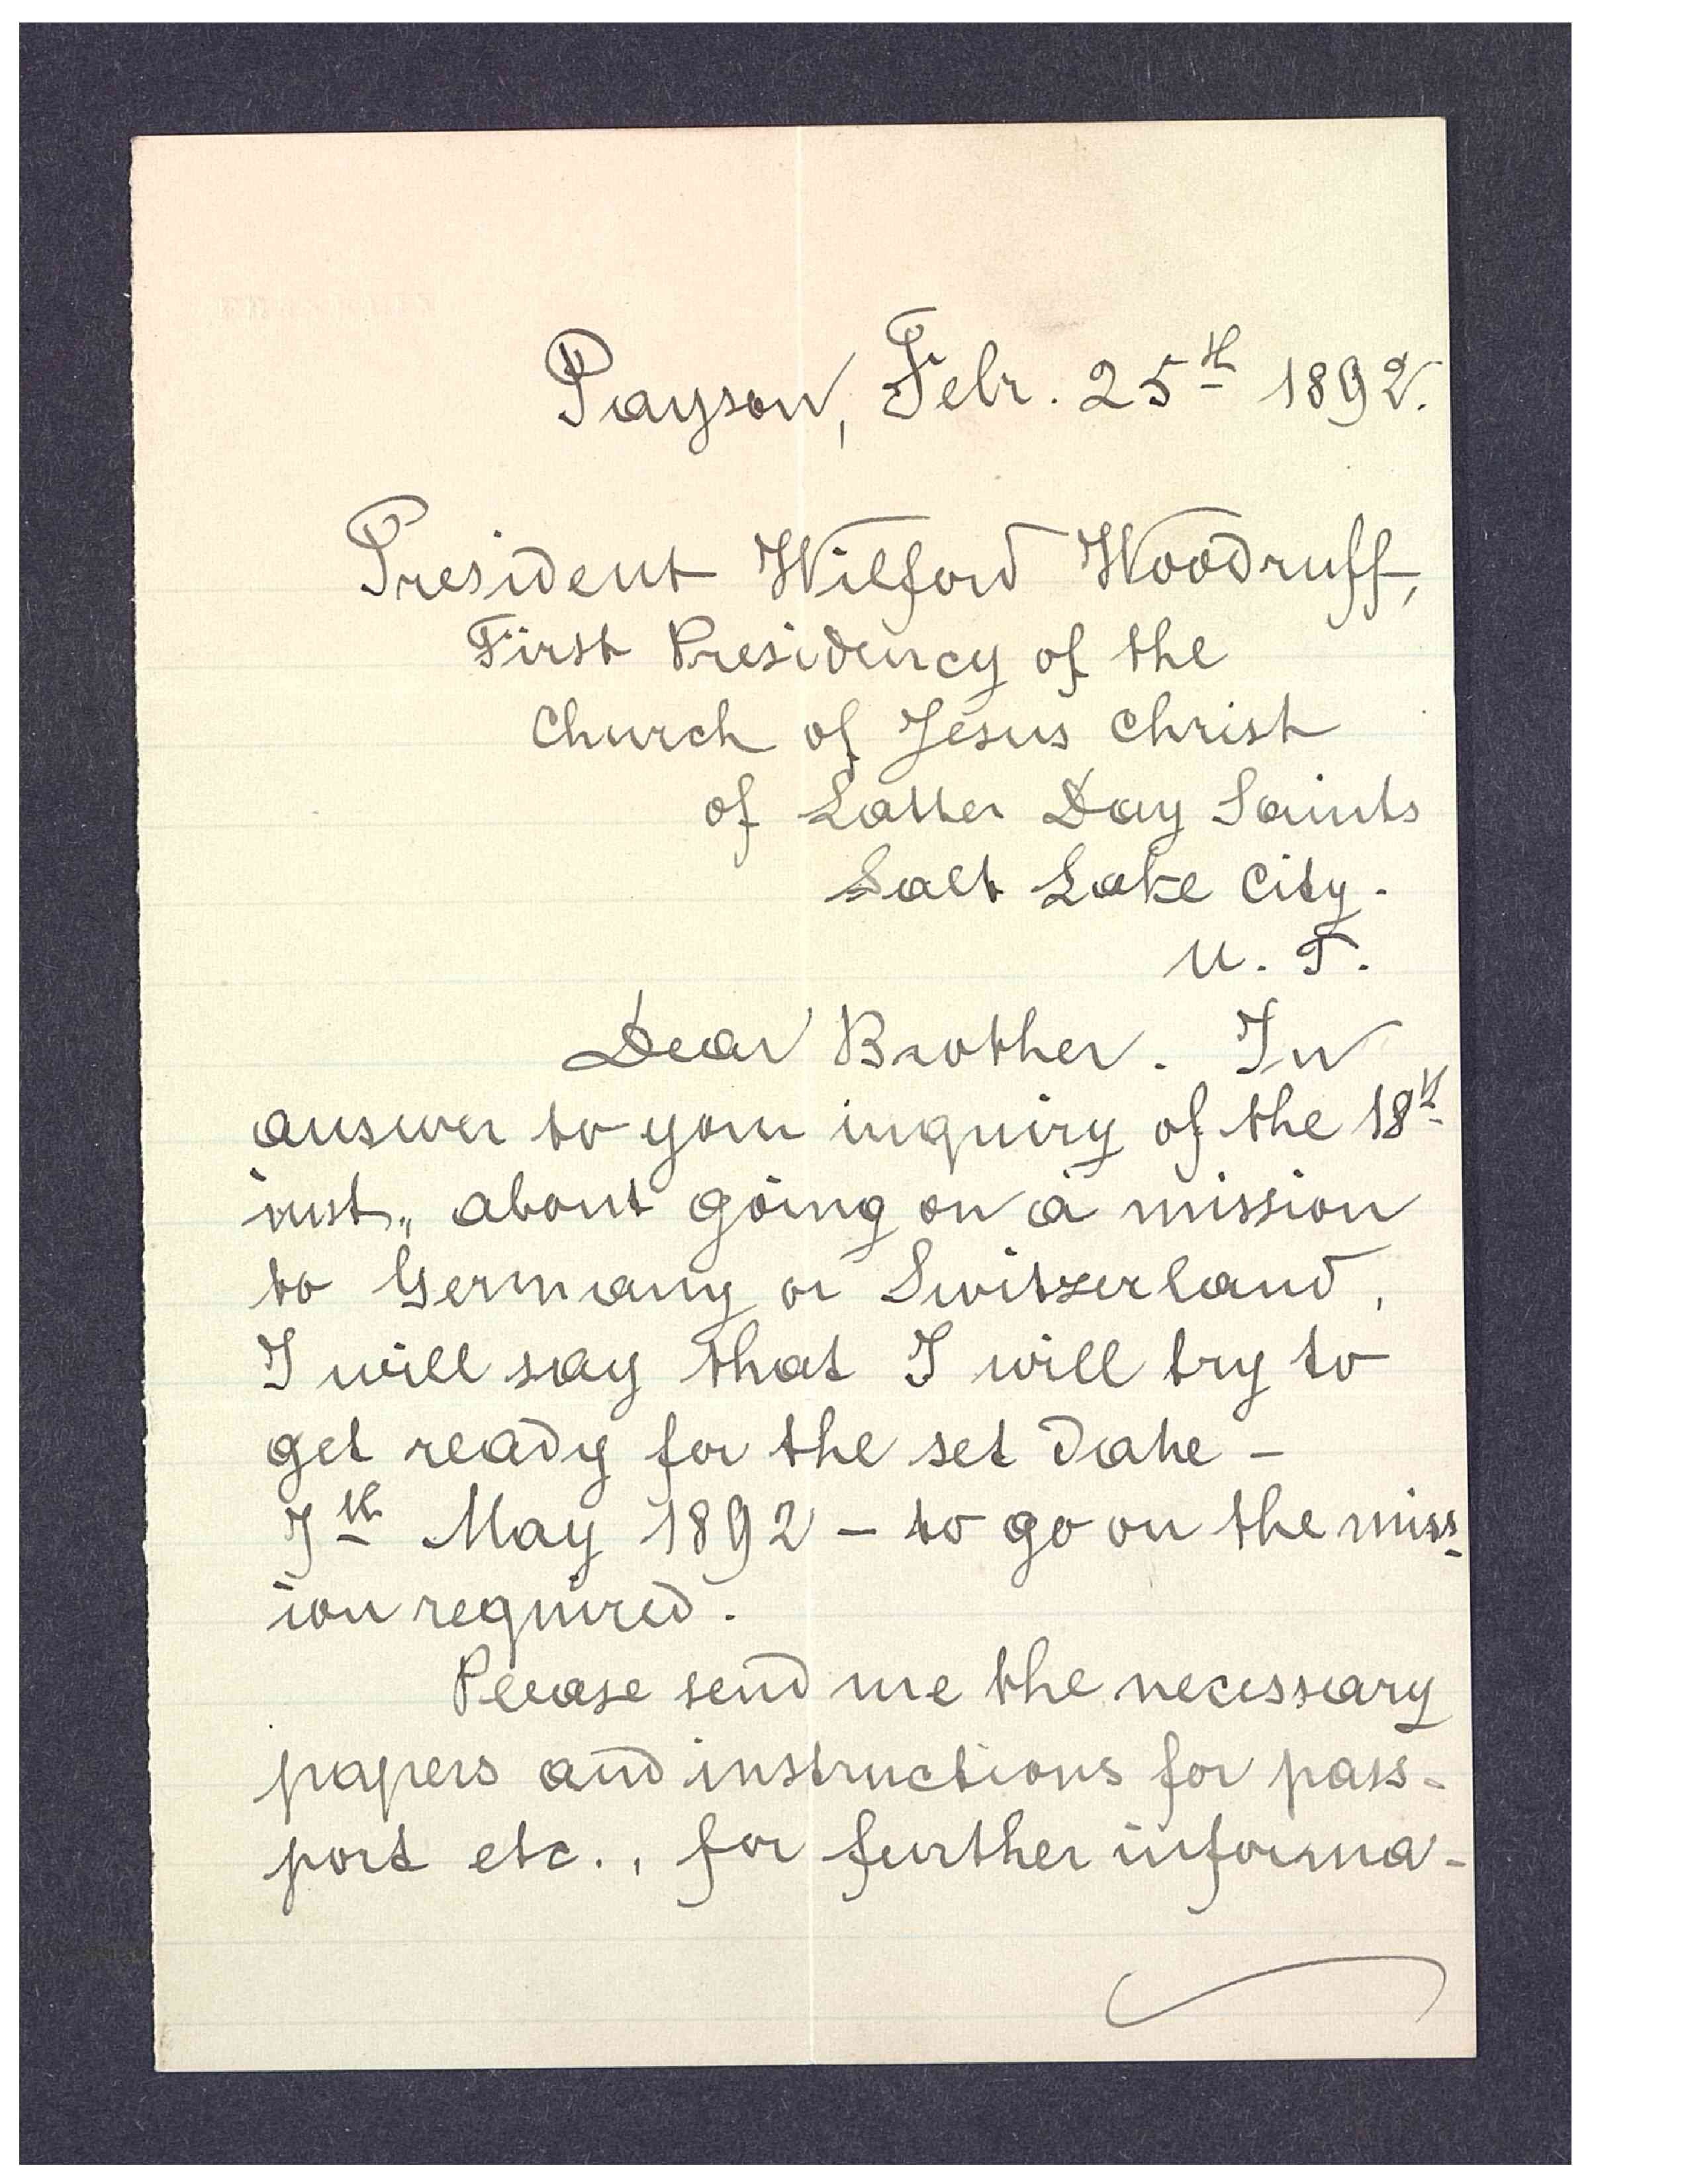 Payson, Febr. 25th 1892.
President Wilford Woodruff,
First Presidency of the
Church of Jesus Christ
of Latter Day Saints
Salt Lake City.
U. T.
Dear Brother. In
answer to your inquiry of the 18th
inst., about going on a mission
to Germany or Switzerland,
I will say that I will try to
get ready for the set date –
7th May 1892 – to go on the miss-
ion required.
Please send me the necessary
papers and instructions for pass-
port etc., for further informa-